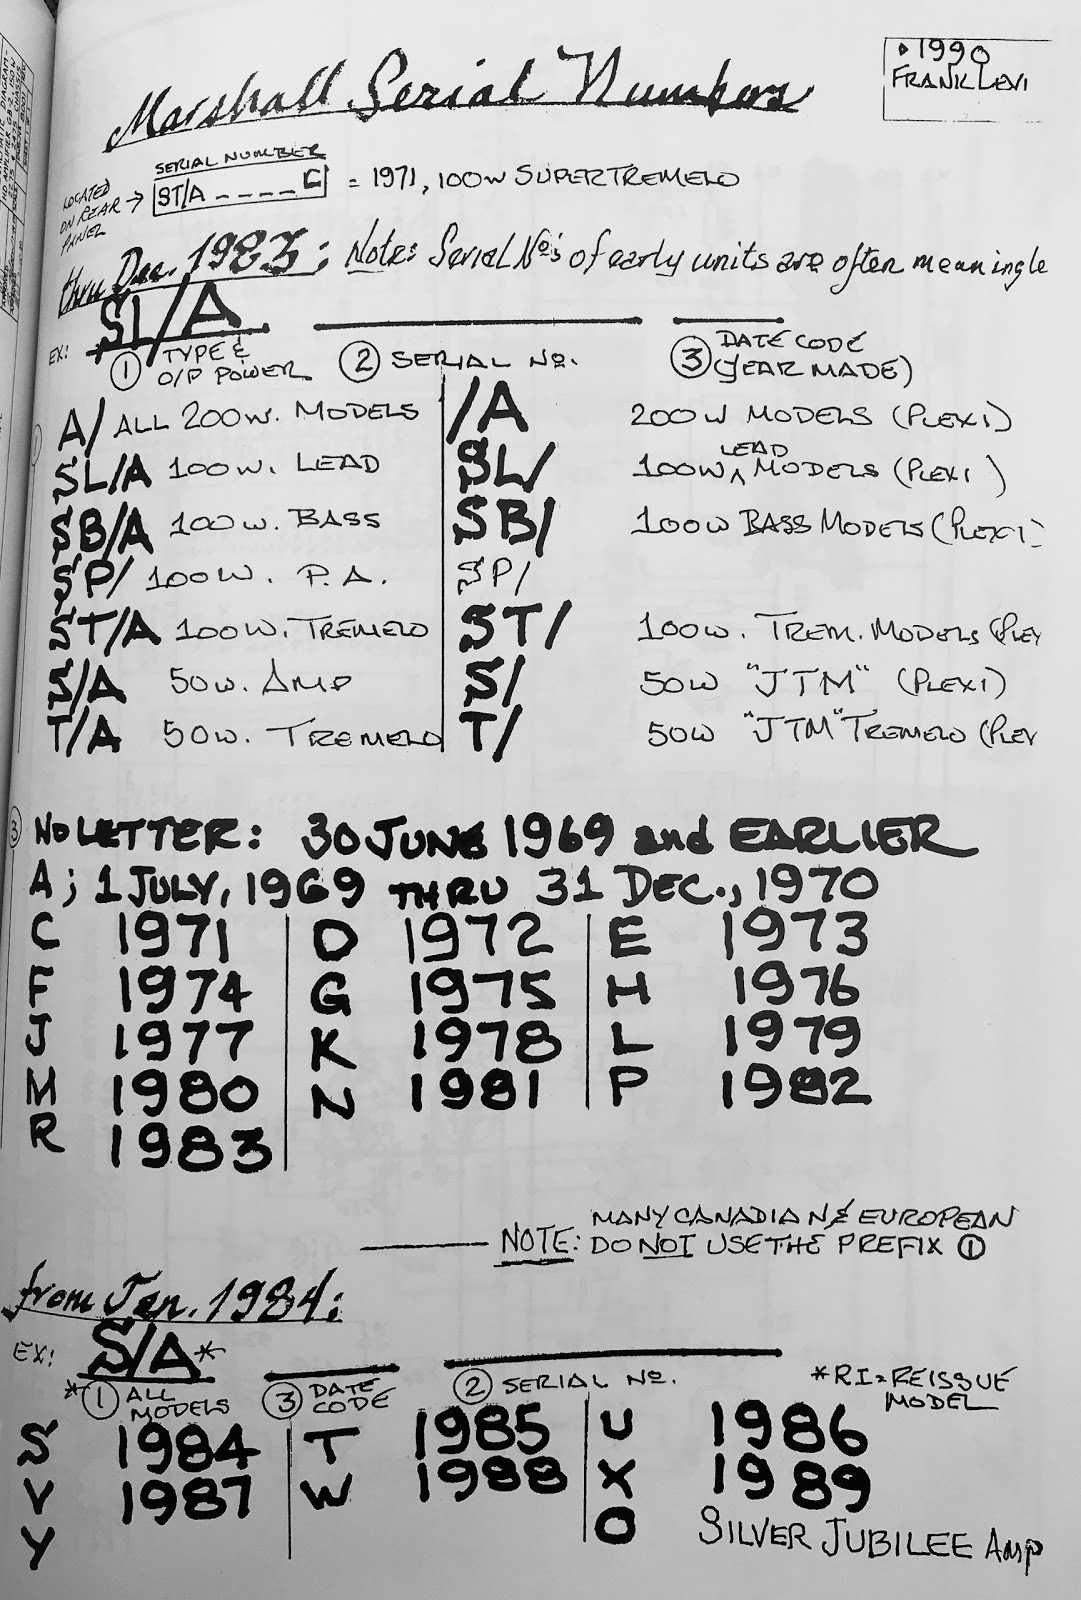 • 1990
FRANK LEVI
Marshall Serial Numbers
SERIAL NUMBER
LOCATED ON REAR PANEL → ST/A _ _ _ _ C = 1971, 100W SUPER TREMELO
thru Dec. 1983: Note: Serial No's of early units are often meaningle
EX: SL/A
① TYPE & O/P POWER ② SERIAL No. ③ DATE CODE (YEAR MADE)
A/ ALL 200W. MODELS /A 200W MODELS (PLEXI)
SL/A 100W. LEAD SL/ 100W LEAD MODELS (PLEXI)
SB/A 100W. BASS SB/ 100W BASS MODELS (PLEXI)
SP/ 100W. P.A. SP/
ST/A 100W. TREMELO ST/ 100W. TREM. MODELS (PLEX
S/A 50W. AMP S/ 50W "JTM" (PLEXI)
T/A 50W. TREMELO T/ 50W "JTM" TREMELO (PLEX
③ NO LETTER: 30 JUNE 1969 and EARLIER
A; 1 JULY, 1969 THRU 31 DEC., 1970
C 1971 D 1972 E 1973
F 1974 G 1975 H 1976
J 1977 K 1978 L 1979
M 1980 N 1981 P 1982
R 1983
NOTE: MANY CANADIAN & EUROPEAN
DO NOT USE THE PREFIX ①
from Jan. 1984:
EX: S/A*
*① ALL MODELS ③ DATE CODE ② SERIAL No. *RI = REISSUE MODEL
S 1984 T 1985 U 1986
V 1987 W 1988 X 1989
Y O SILVER JUBILEE Amp